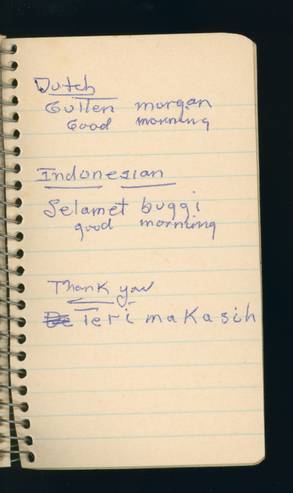 Dutch
Gutten morgan
Good morning
Indonesian
Selamet buggi
good morning
Thank you
Terima Kasih